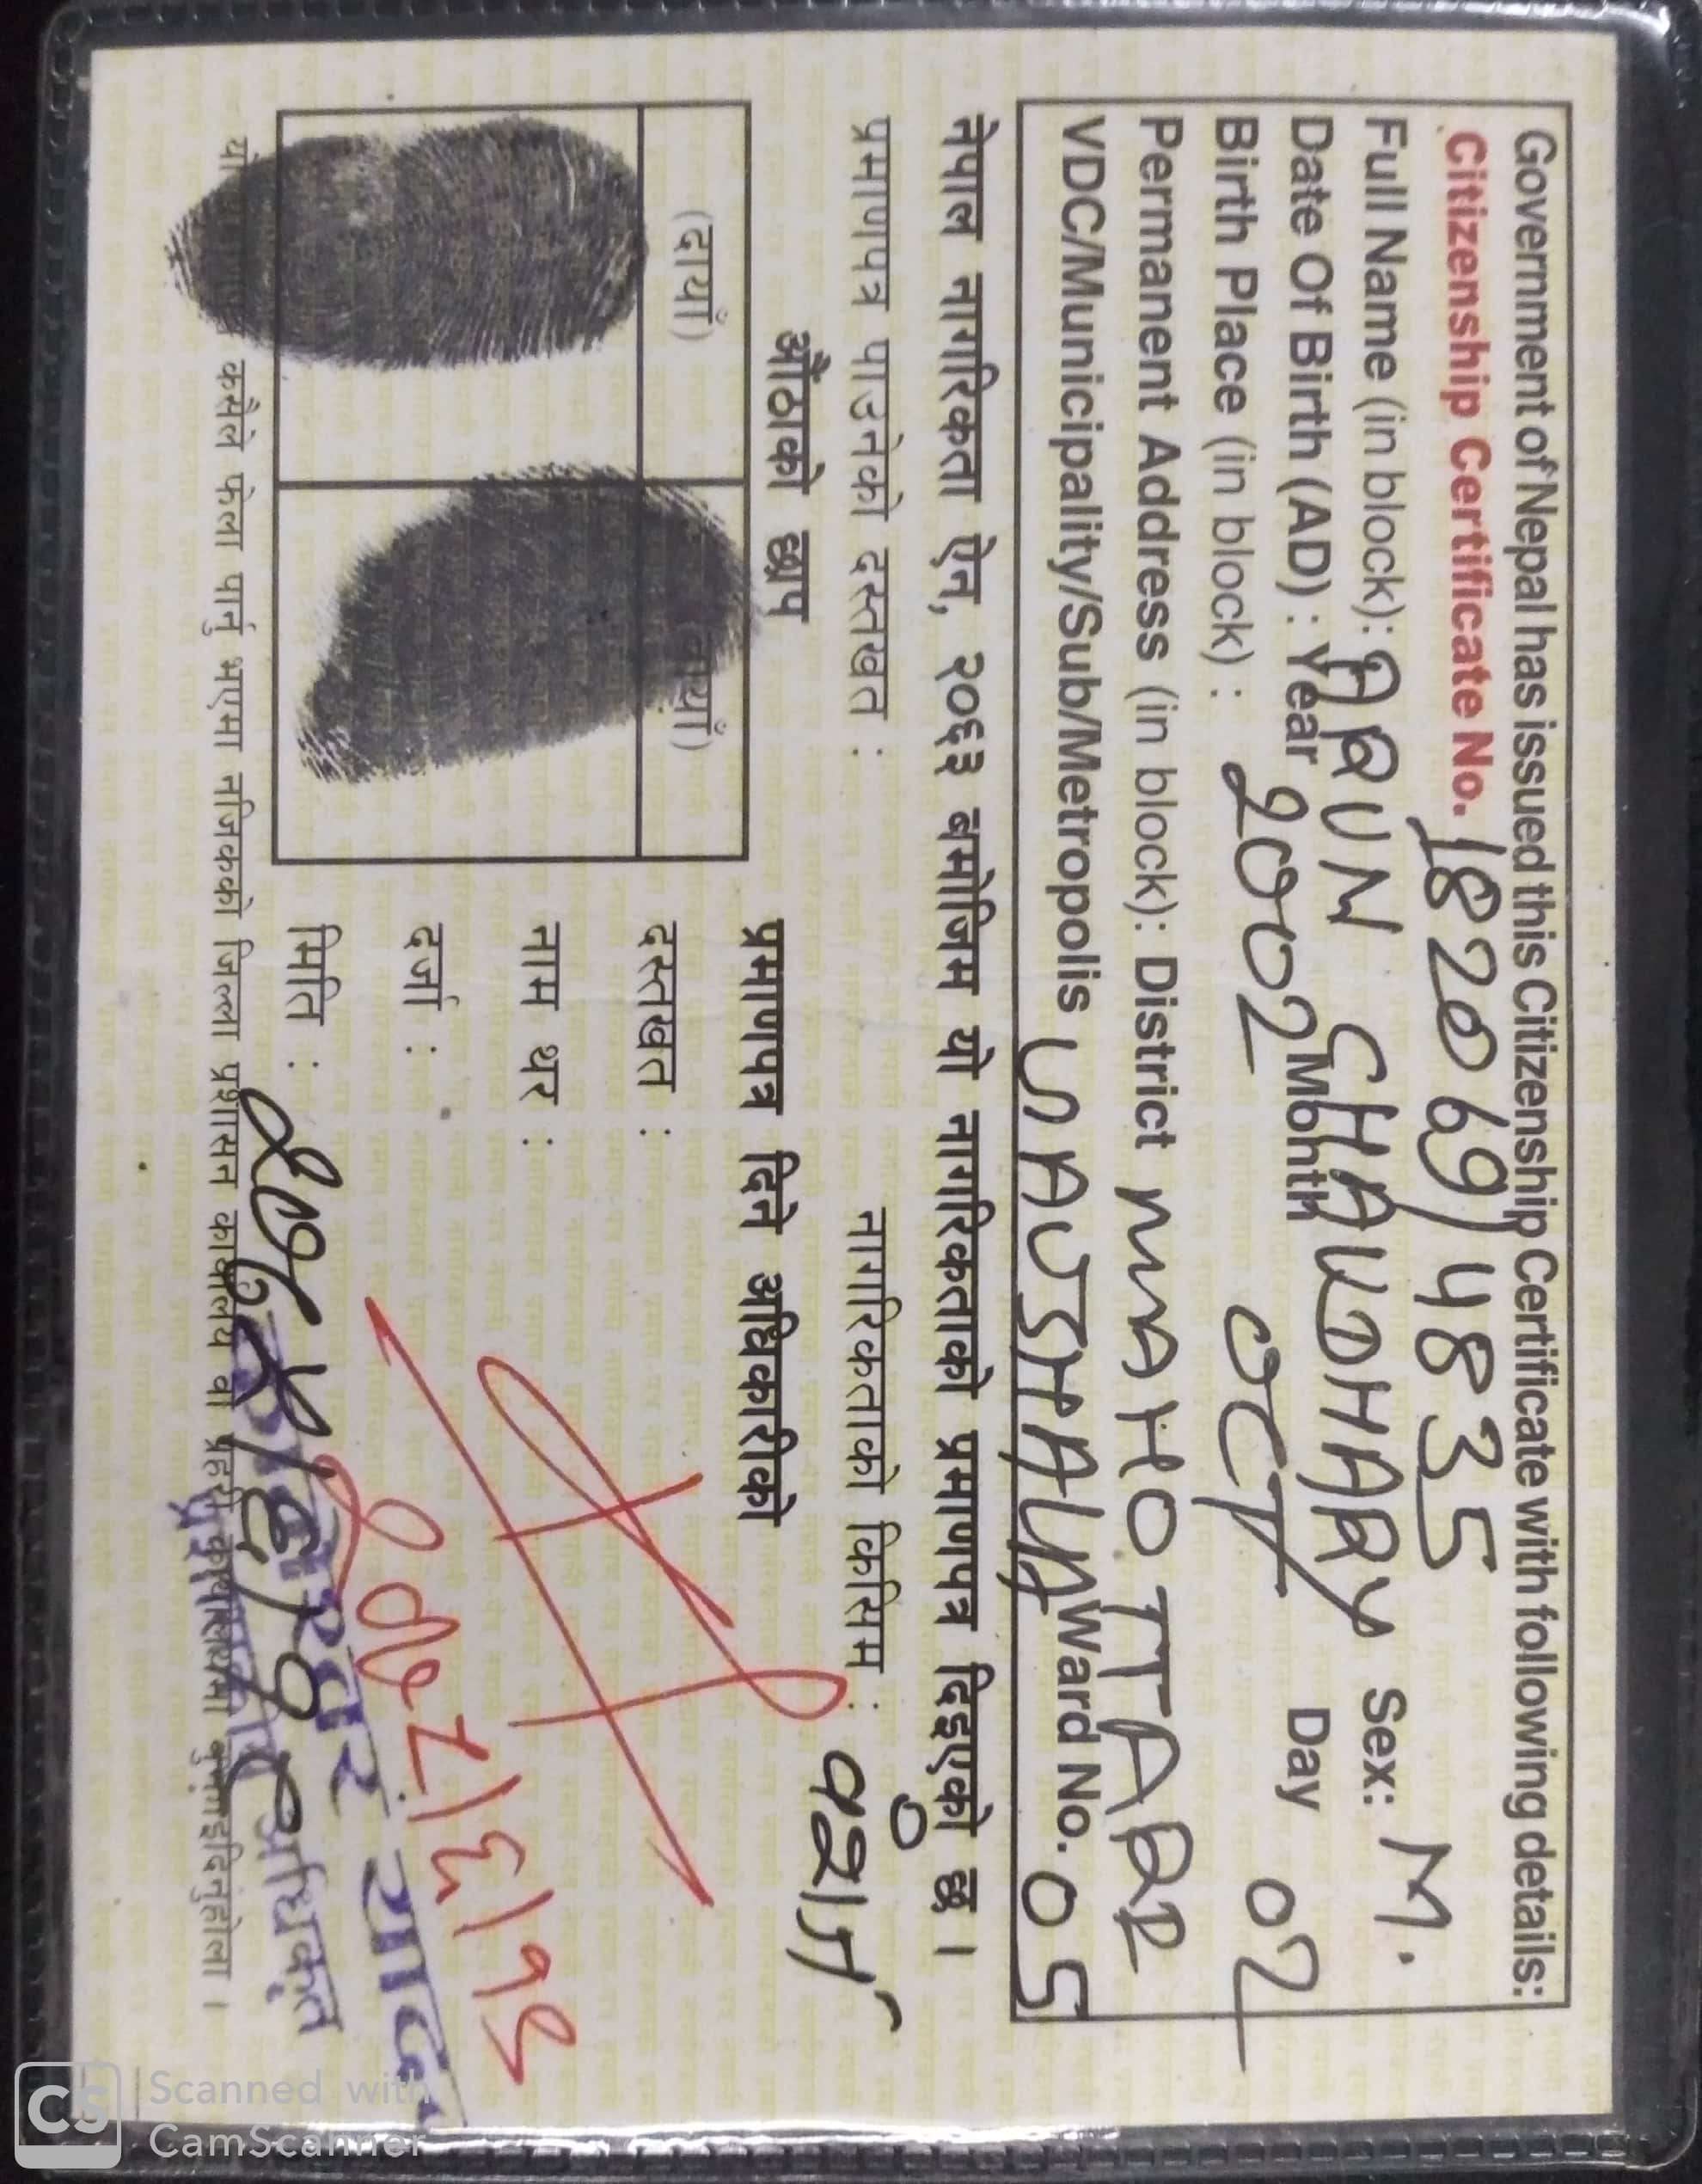 Government of Nepal has issued this Citizenship Certificate with following details:
Citizenship Certificate No. 182069/4835
Full Name (in block): ARUN CHAUDHARY Sex: M.
Date Of Birth (AD) : Year 2002 Month OCT Day 02
Birth Place (in block) :
Permanent Address (in block): District MAHOTTARI
VDC/Municipality/Sub/Metropolis GAUSHALA Ward No. 05
नेपाल नागरिकता ऐन, २०६३ बमोजिम यो नागरिकताको प्रमाणपत्र दिइएको छ ।
प्रमाणपत्र पाउनेको दस्तखत : नागरिकताको किसिम : वंशज
औंठाको छाप
(दायाँ) (बायाँ)
प्रमाणपत्र दिने अधिकारीको
दस्तखत :
नाम थर :
दर्जा :
यादव
अधिकृत
मिति :
यो कसैले फेला पार्नु भएमा नजिकको जिल्ला प्रशासन कार्यालय वा प्रहरी कार्यालयमा बुझाइदिनुहोला ।
CS Scanned with
CamScanner